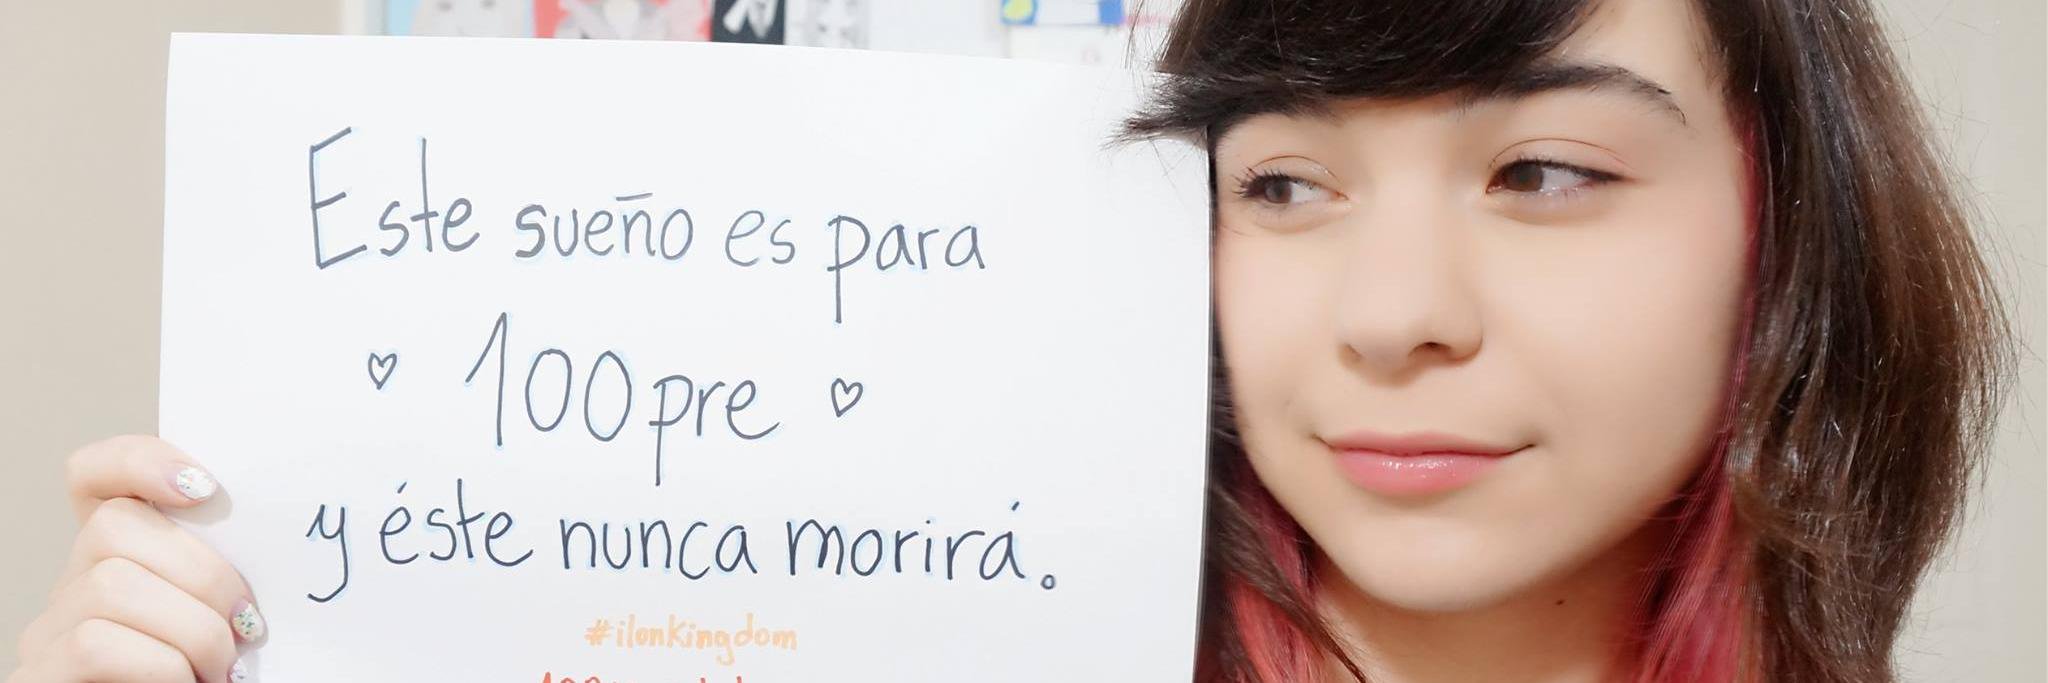 Este sueño es para
♥ 100pre ♥
y éste nunca morirá.
#ilonkingdom